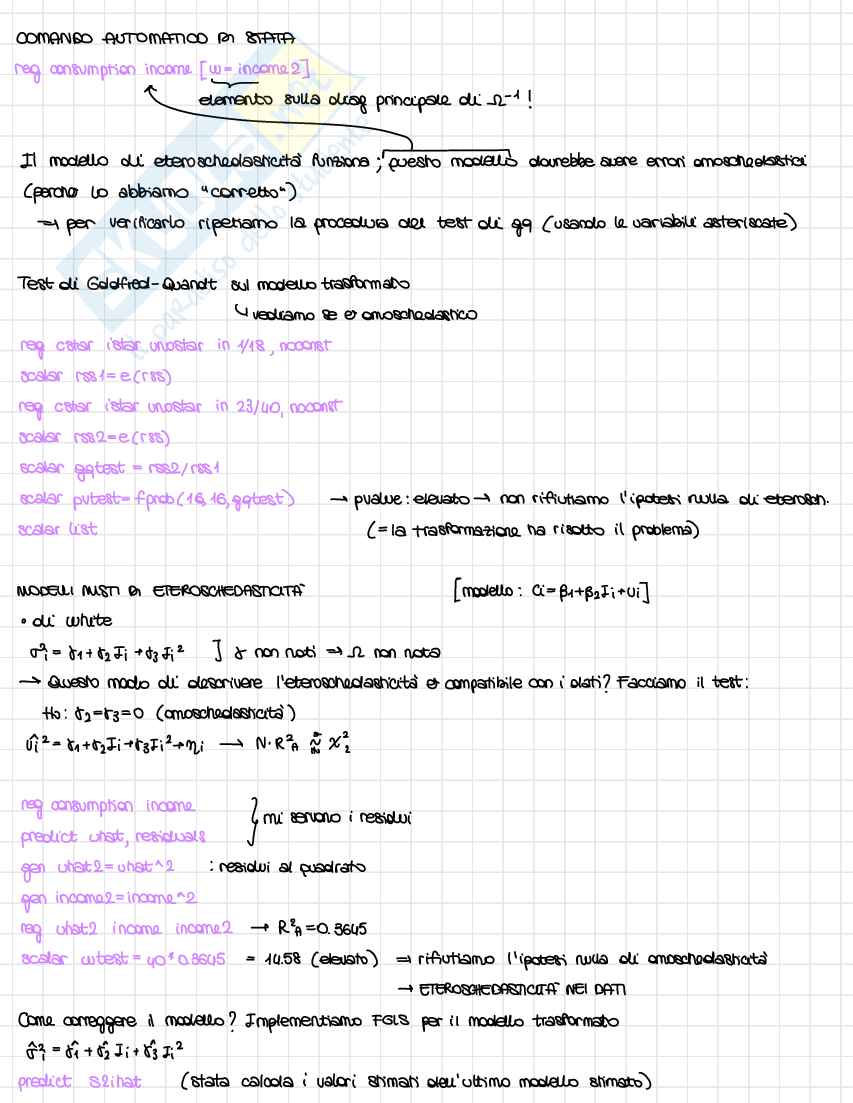 COMANDO AUTOMATICO DI STATA
reg consumption income [w= income2]
elemento sulla diag principale di Ω⁻¹ !
Il modello di eteroschedasticità funziona ; questo modello dovrebbe avere errori omoschedastici
(perché lo abbiamo "corretto")
→ per verificarlo ripetiamo la procedura del test di gq (usando le variabili asteriscate)
Test di Goldfred-Quandt sul modello trasformato
↳ vediamo se è omoschedastico
reg cstar istar unostar in 1/18, noconst
scalar rss1=e(rss)
reg cstar istar unostar in 23/40, noconst
scalar rss2=e(rss)
scalar gqtest = rss2/rss1
scalar pvtest= fprob(16,16,gqtest) → pvalue: elevato → non rifiutiamo l'ipotesi nulla di eterosch.
scalar list (=la trasformazione ha risolto il problema)
MODELLI MISTI DI ETEROSCHEDASTICITÀ [modello: Ci=β1+β2Ii+ui]
• di White
σ²i = γ1+γ2Ii+γ3Ii² ] γ non noti ⇒ Ω non nota
→ Questo modo di descrivere l'eteroschedasticità è compatibile con i dati? Facciamo il test:
H0: γ2=γ3=0 (omoschedasticità)
ûi²=γ1+γ2Ii+γ3Ii²+ηi → N·R²A ≈ χ²2
reg consumption income
predict uhat, residuals } mi servono i residui
gen uhat2=uhat^2 : residui al quadrato
gen income2=income^2
reg uhat2 income income2 → R²A=0.3645
scalar wtest=40*0.3645 = 14.58 (elevato) ⇒ rifiutiamo l'ipotesi nulla di omoschedasticità
→ ETEROSCHEDASTICITÀ NEI DATI
Come correggere il modello? Implementiamo FGLS per il modello trasformato
σ̂²i = γ̂1+γ̂2Ii+γ̂3Ii²
predict s2ihat (stata calcola i valori stimati dell'ultimo modello stimato)
SKUOLA.net
il paradiso dello studente